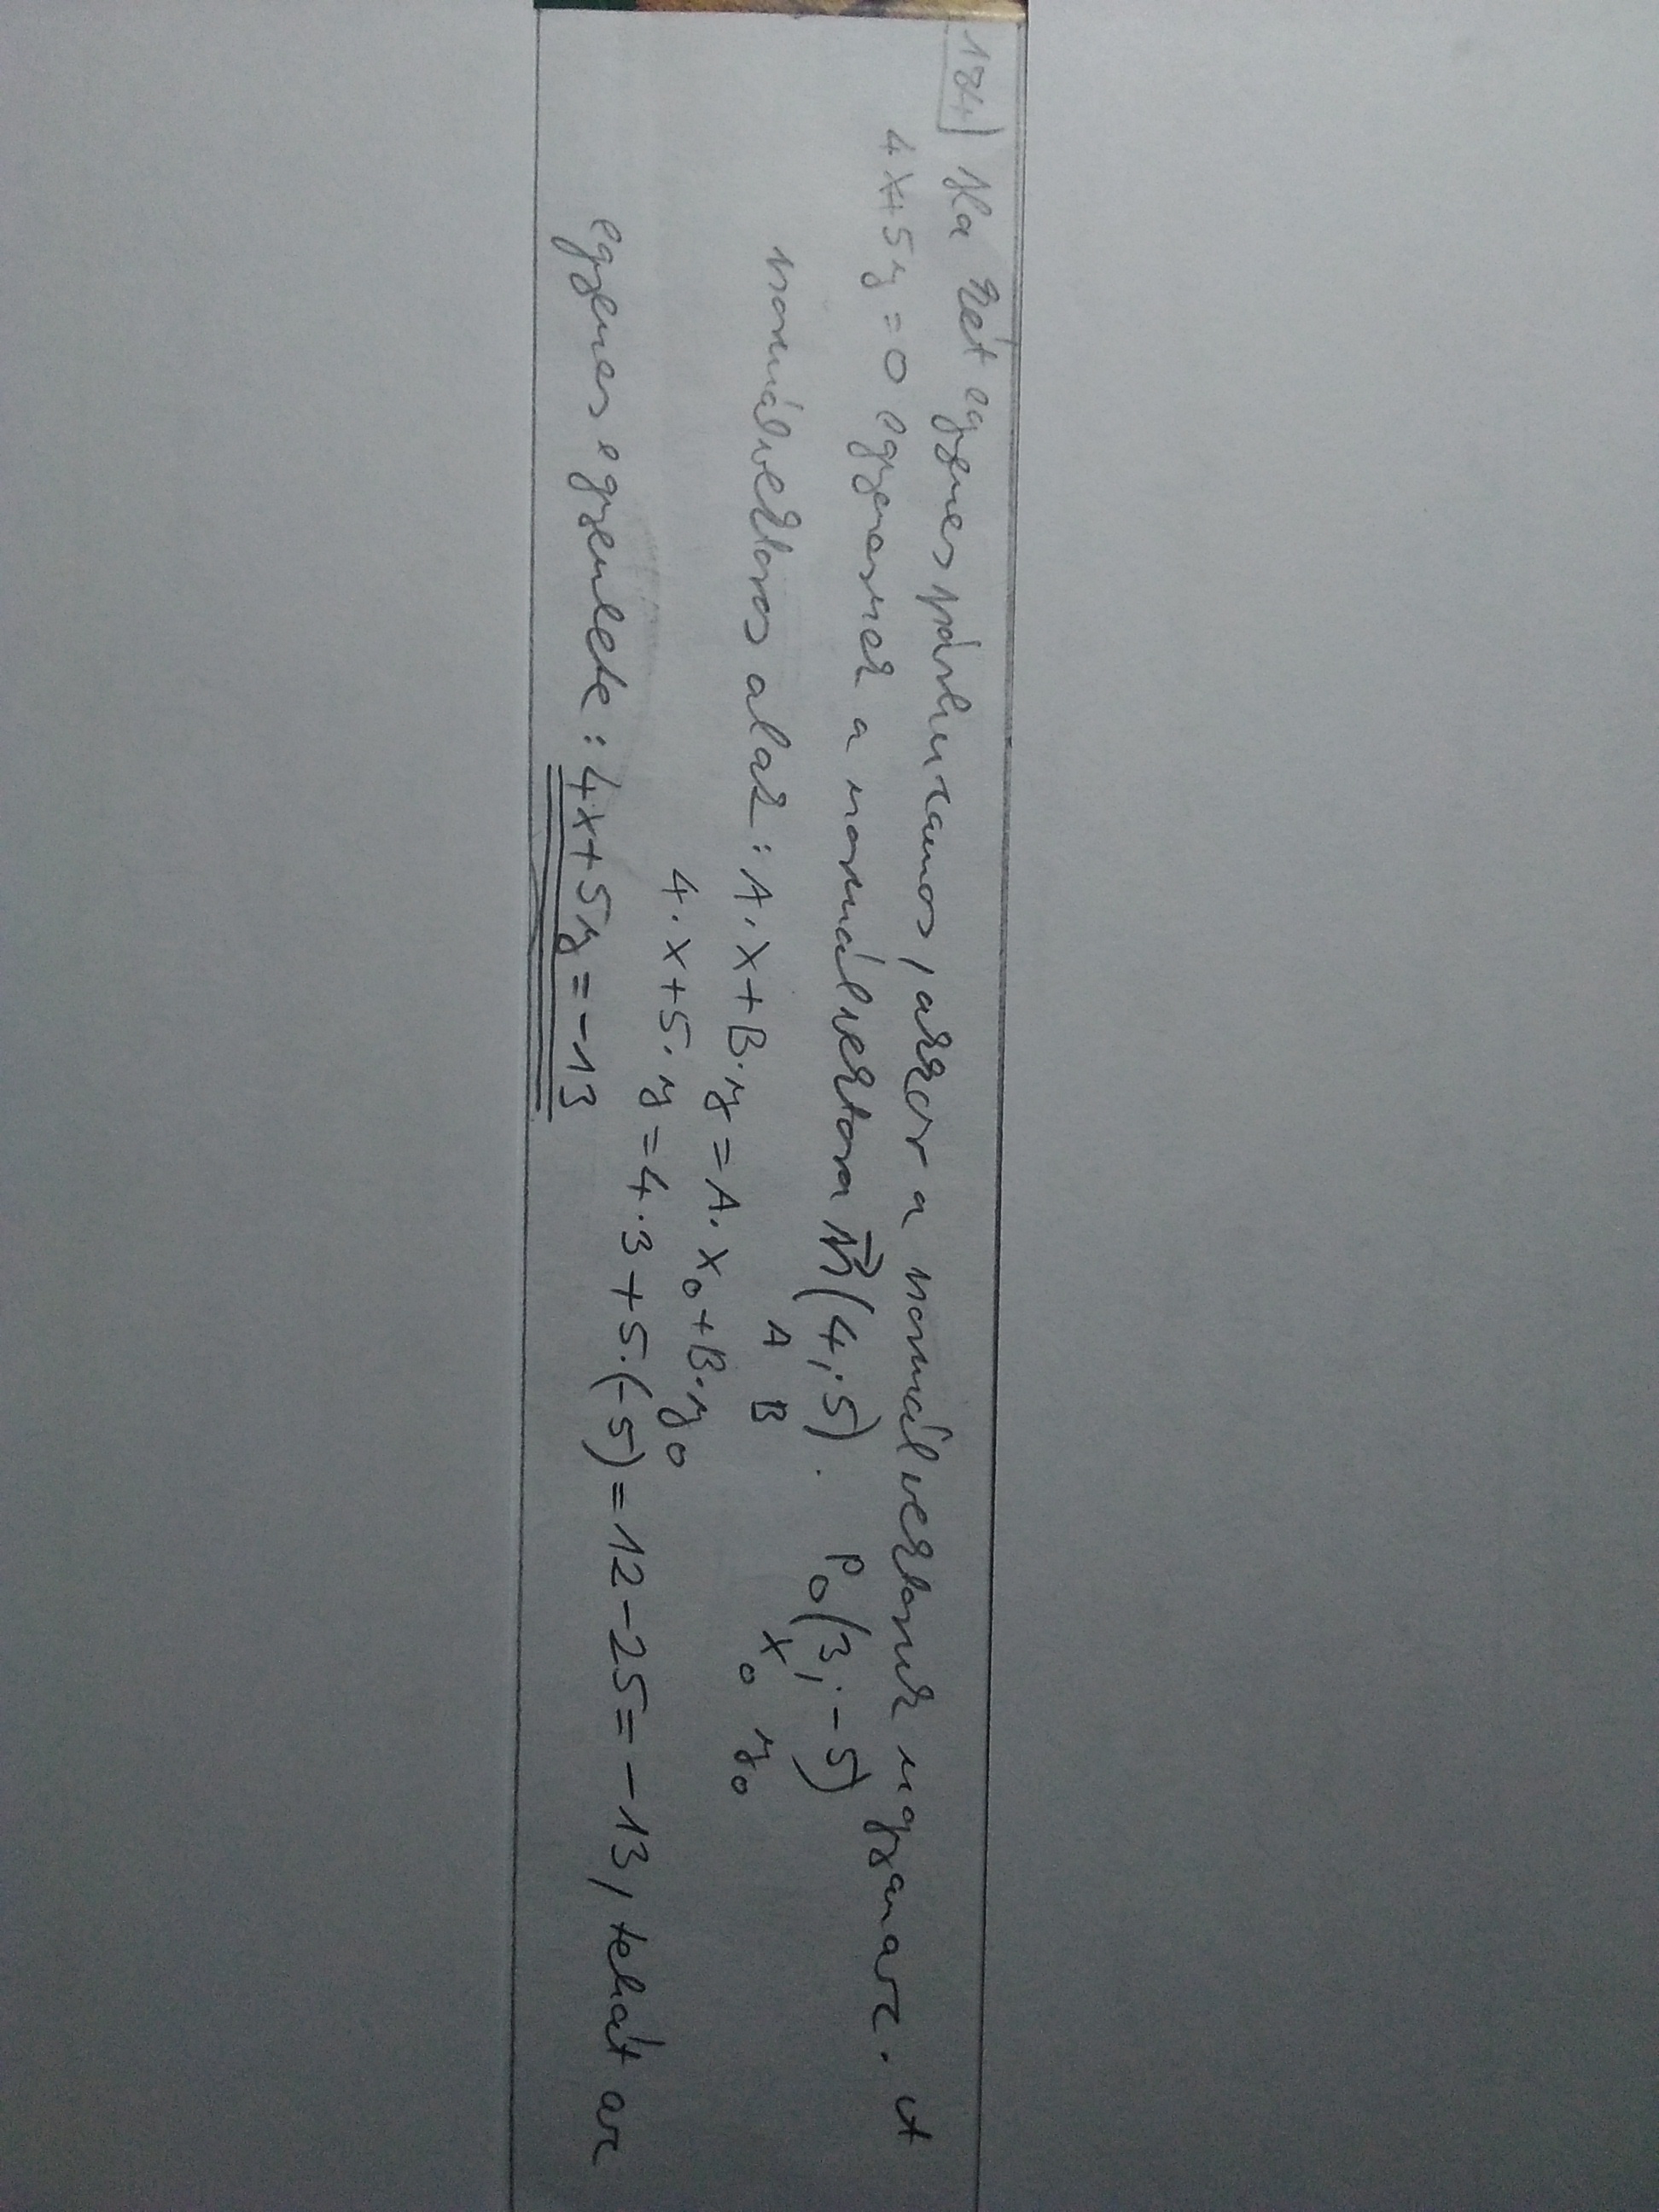 174) Ha két egyenes párhuzamos, akkor a normálvektoruk ugyanaz. A
4x+5y=0 egyenesnek a normálvektora n⃗(4;5). P₀(3;-5)
A B x₀ y₀
normálvektoros alak: A·x+B·y=A·x₀+B·y₀
4·x+5·y=4·3+5·(-5)=12-25=-13, tehát az
egyenes egyenlete: 4x+5y=-13